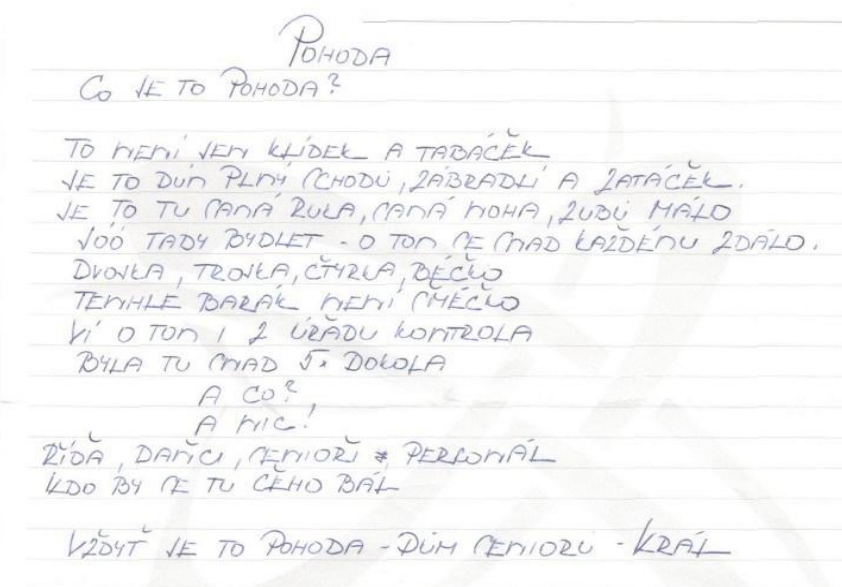 POHODA
CO JE TO POHODA?
TO NENÍ JEN KLÍDEK A TABÁČEK
JE TO DŮM PLNÝ SCHODŮ, ZÁBRADLÍ A ZATÁČEK.
JE TO TU SAMÁ RUKA, SAMÁ NOHA, ZUBŮ MÁLO
JÓÓ TADY BYDLET - O TOM SE SNAD KAŽDÉMU ZDÁLO.
DVOJKA, TROJKA, ČTYRKA, BÉČKO
TENHLE BARÁK NENÍ SMĚČKO
VÍ O TOM I Z ÚŘADU KONTROLA
BYLA TU SNAD 5x DOKOLA
A CO?
A NIC!
ŘÍĎA, DAŇCI, SENIOŘI PERSONÁL
KDO BY SE TU ČEHO BÁL
VŽDYŤ JE TO POHODA - DŮM SENIORŮ - KRÁL